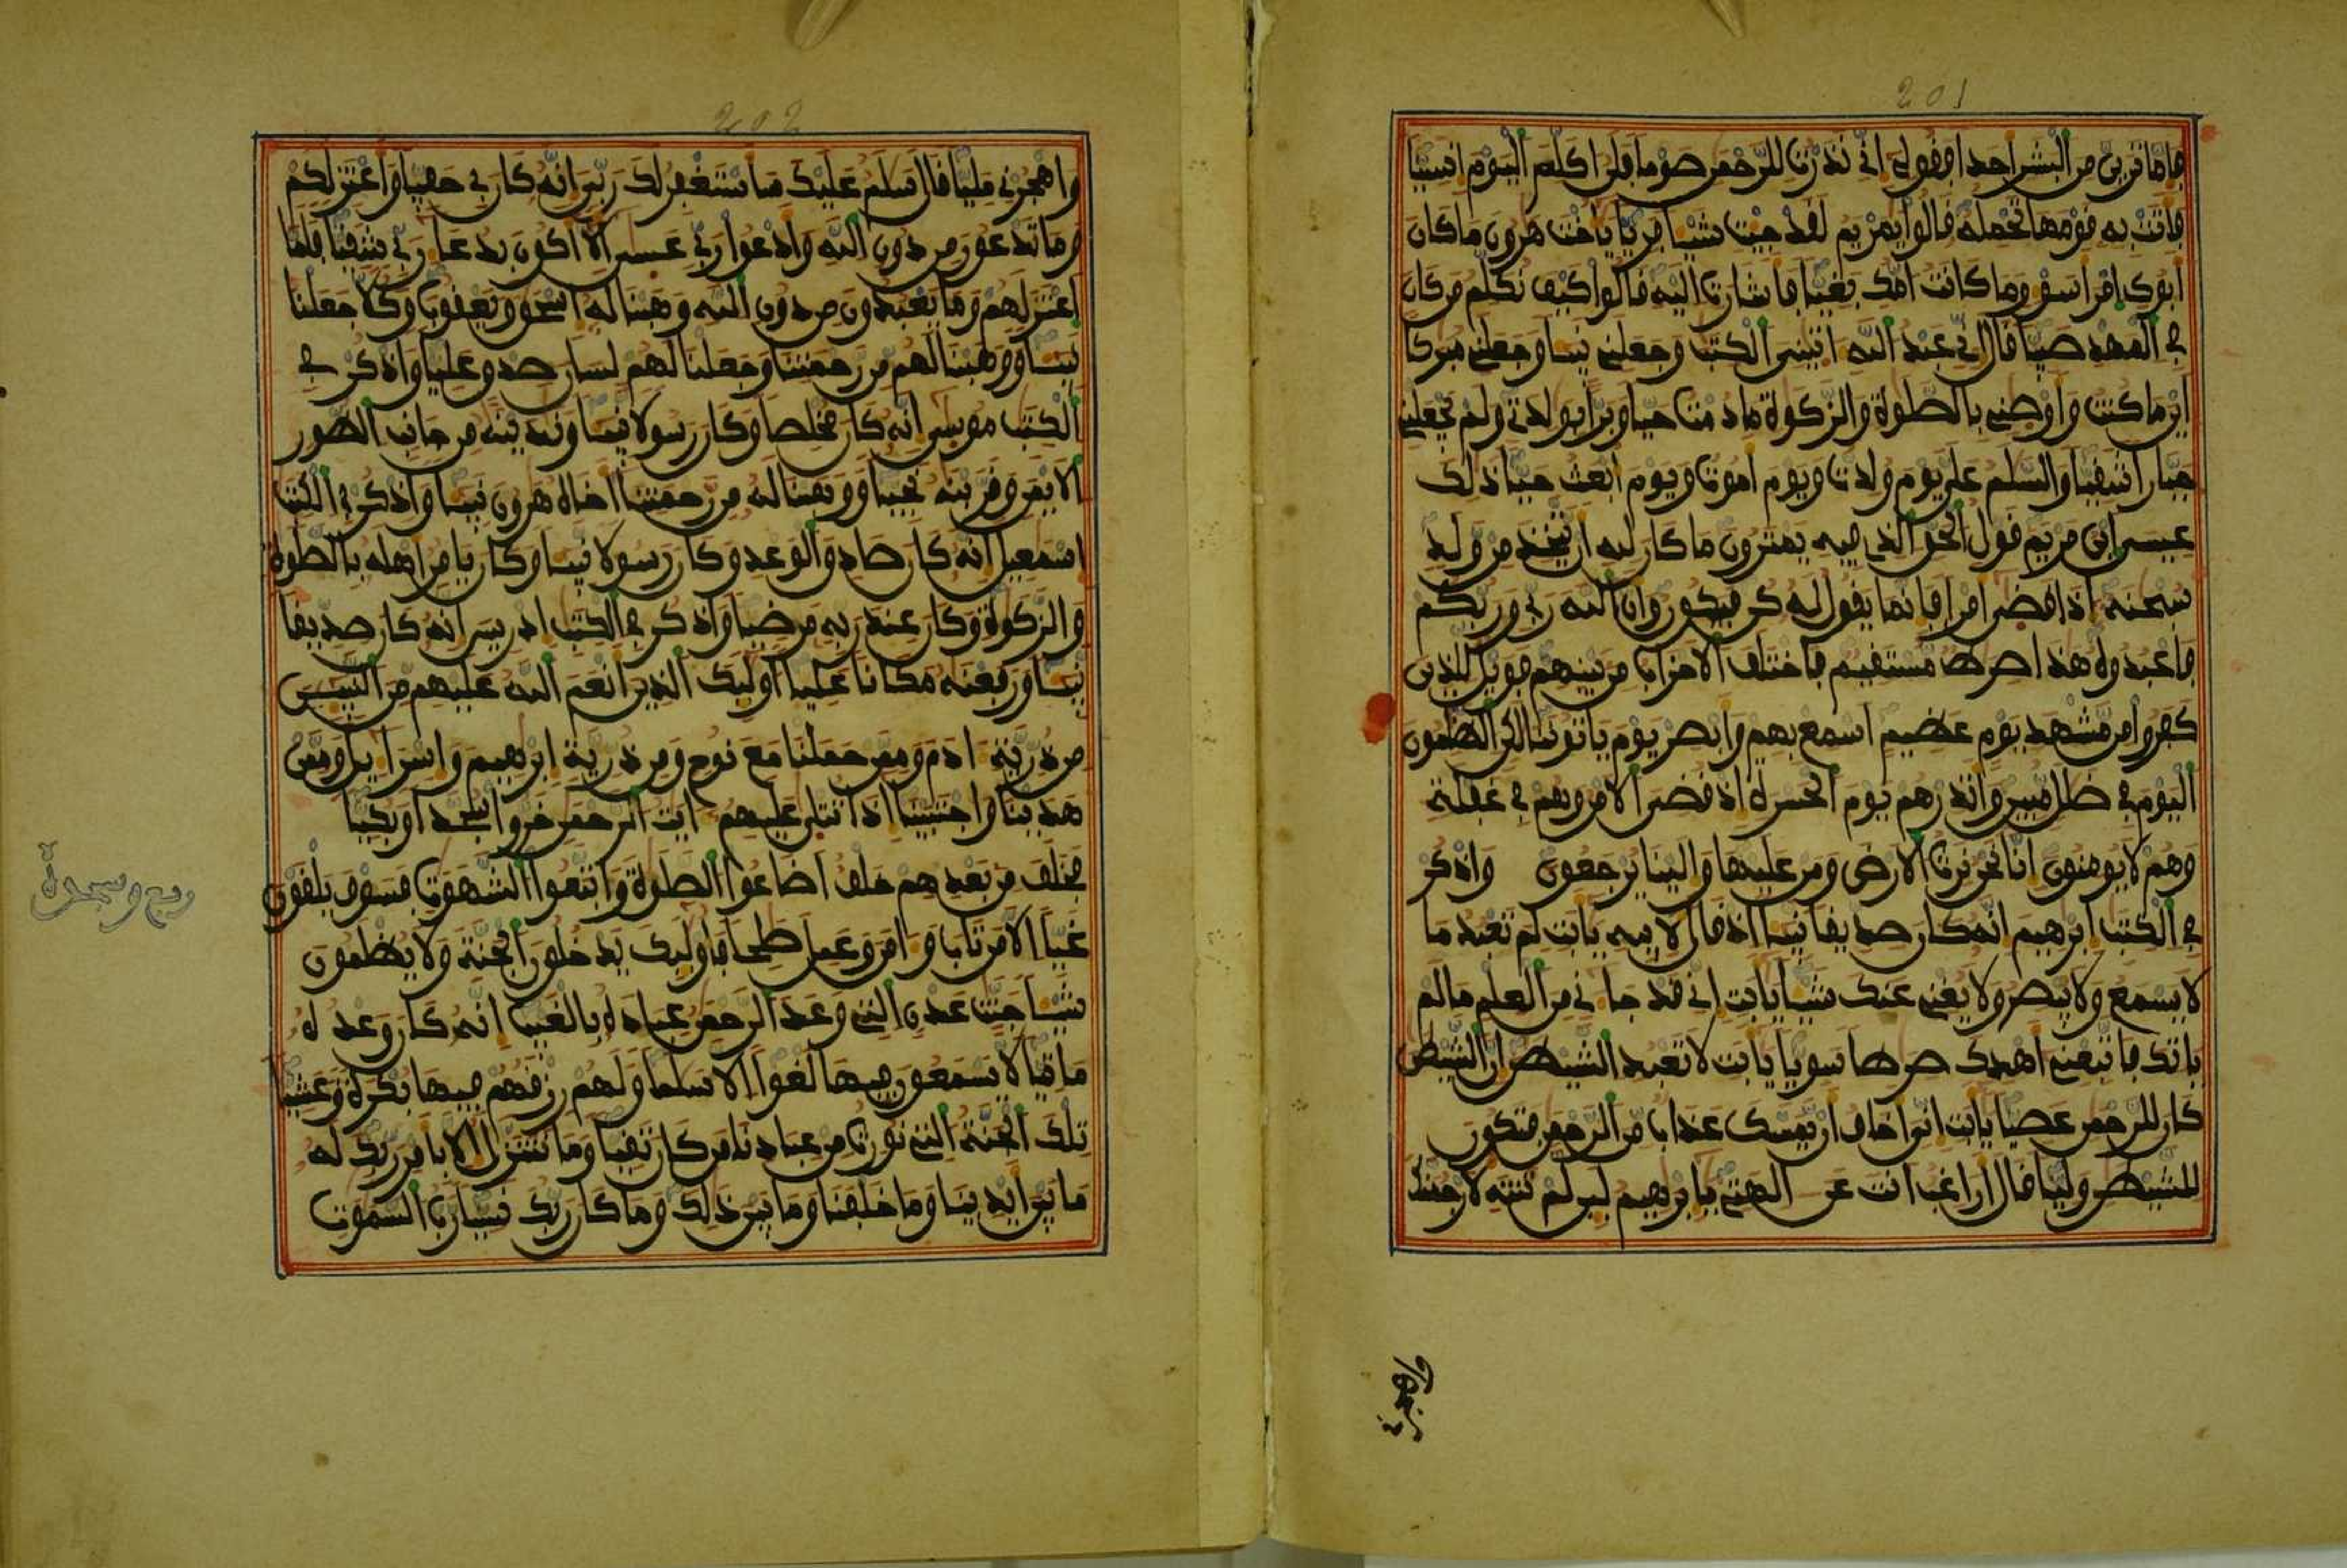 201
فإما ترين من البشر أحدا فقولي إني نذرت للرحمن صوما فلن أكلم اليوم إنسيا
فأتت به قومها تحمله قالوا يمريم لقد جيت شيـا فريا يأخت هرون ما كان
أبوك امرأ سو وما كانت أمك بغيا فأشارت إليه قالوا كيف نكلم من كان
في المهد صبيا قال إني عبد الله اتيني الكتب وجعلني نبيـا وجعلني مبركا
أين ما كنت وأوصني بالصلوة والزكوة ما دمت حيا وبرا بولدتي ولم يجعلني
جبارا شقيا والسلم علي يوم ولدت ويوم أموت ويوم أبعث حيا ذلك
عيسى ابن مريم قول الحق الذي فيه يمترون ما كان لله أن يتخذ من ولد
سبحنه إذا قضى أمرا فإنما يقول له كن فيكون وأن الله ربي وربكم
فاعبدوه هذا صرط مستقيم فاختلف الأحزاب من بينهم فويل للذين
كفروا من مشهد يوم عظيم أسمع بهم وأبصر يوم يأتوننا لكن الظلمون
اليوم في ضلل مبين وأنذرهم يوم الحسرة إذ قضي الأمر وهم في غفلة
وهم لا يومنون إنا نحن نرث الأرض ومن عليها وإلينا يرجعون واذكر
في الكتب إبرهيم إنه كان صديقا نبيـا إذ قال لأبيه يأبت لم تعبد ما
لا يسمع ولا يبصر ولا يغني عنك شيـا يأبت إني قد جاني من العلم ما لم
ياتك فاتبعني أهدك صرطا سويا يأبت لا تعبد الشيطن إن الشيطن
كان للرحمن عصيا يأبت إني أخاف أن يمسك عذاب من الرحمن فتكون
للشيطن وليا قال أراغب انت عن الهتي يإبرهيم لين لم تنته لأرجمنك
واهجرني
202
واهجرني مليا قال سلم عليك سأستغفر لك ربي إنه كان بي حفيا وأعتزلكم
وما تدعون من دون الله وأدعوا ربي عسى ألا أكون بدعا ربي شقيا فلما
اعتزلهم وما يعبدون من دون الله وهبنا له إسحق ويعقوب وكلا جعلنا
نبيـا ووهبنا لهم من رحمتنا وجعلنا لهم لسان صدق عليا واذكر في
الكتب موسى إنه كان مخلصا وكان رسولا نبيـا وندينه من جانب الطور
الأيمن وقربنه نجيا ووهبنا له من رحمتنا أخاه هرون نبيـا واذكر في الكتب
إسمعيل إنه كان صادق الوعد وكان رسولا نبيـا وكان يامر أهله بالصلوة
والزكوة وكان عند ربه مرضيا واذكر في الكتب إدريس إنه كان صديقا
نبيـا ورفعنه مكانا عليا أوليك الذين أنعم الله عليهم من النبيـين
من ذرية ادم وممن حملنا مع نوح ومن ذرية إبرهيم وإسراءيل وممن
هدينا واجتبينا إذا تتلى عليهم ايت الرحمن خروا سجدا وبكيا
فخلف من بعدهم خلف أضاعوا الصلوة واتبعوا الشهوت فسوف يلقون
غيا إلا من تاب وامن وعمل صلحا فأوليك يدخلون الجنة ولا يظلمون
شيـا جنت عدن التي وعد الرحمن عباده بالغيب إنه كان وعده
ماتيا لا يسمعون فيها لغوا إلا سلما ولهم رزقهم فيها بكرة وعشيا
تلك الجنة التي نورث من عبادنا من كان تقيا وما نتنزل إلا بأمر ربك له
ما بين أيدينا وما خلفنا وما بين ذلك وما كان ربك نسيا رب السموت